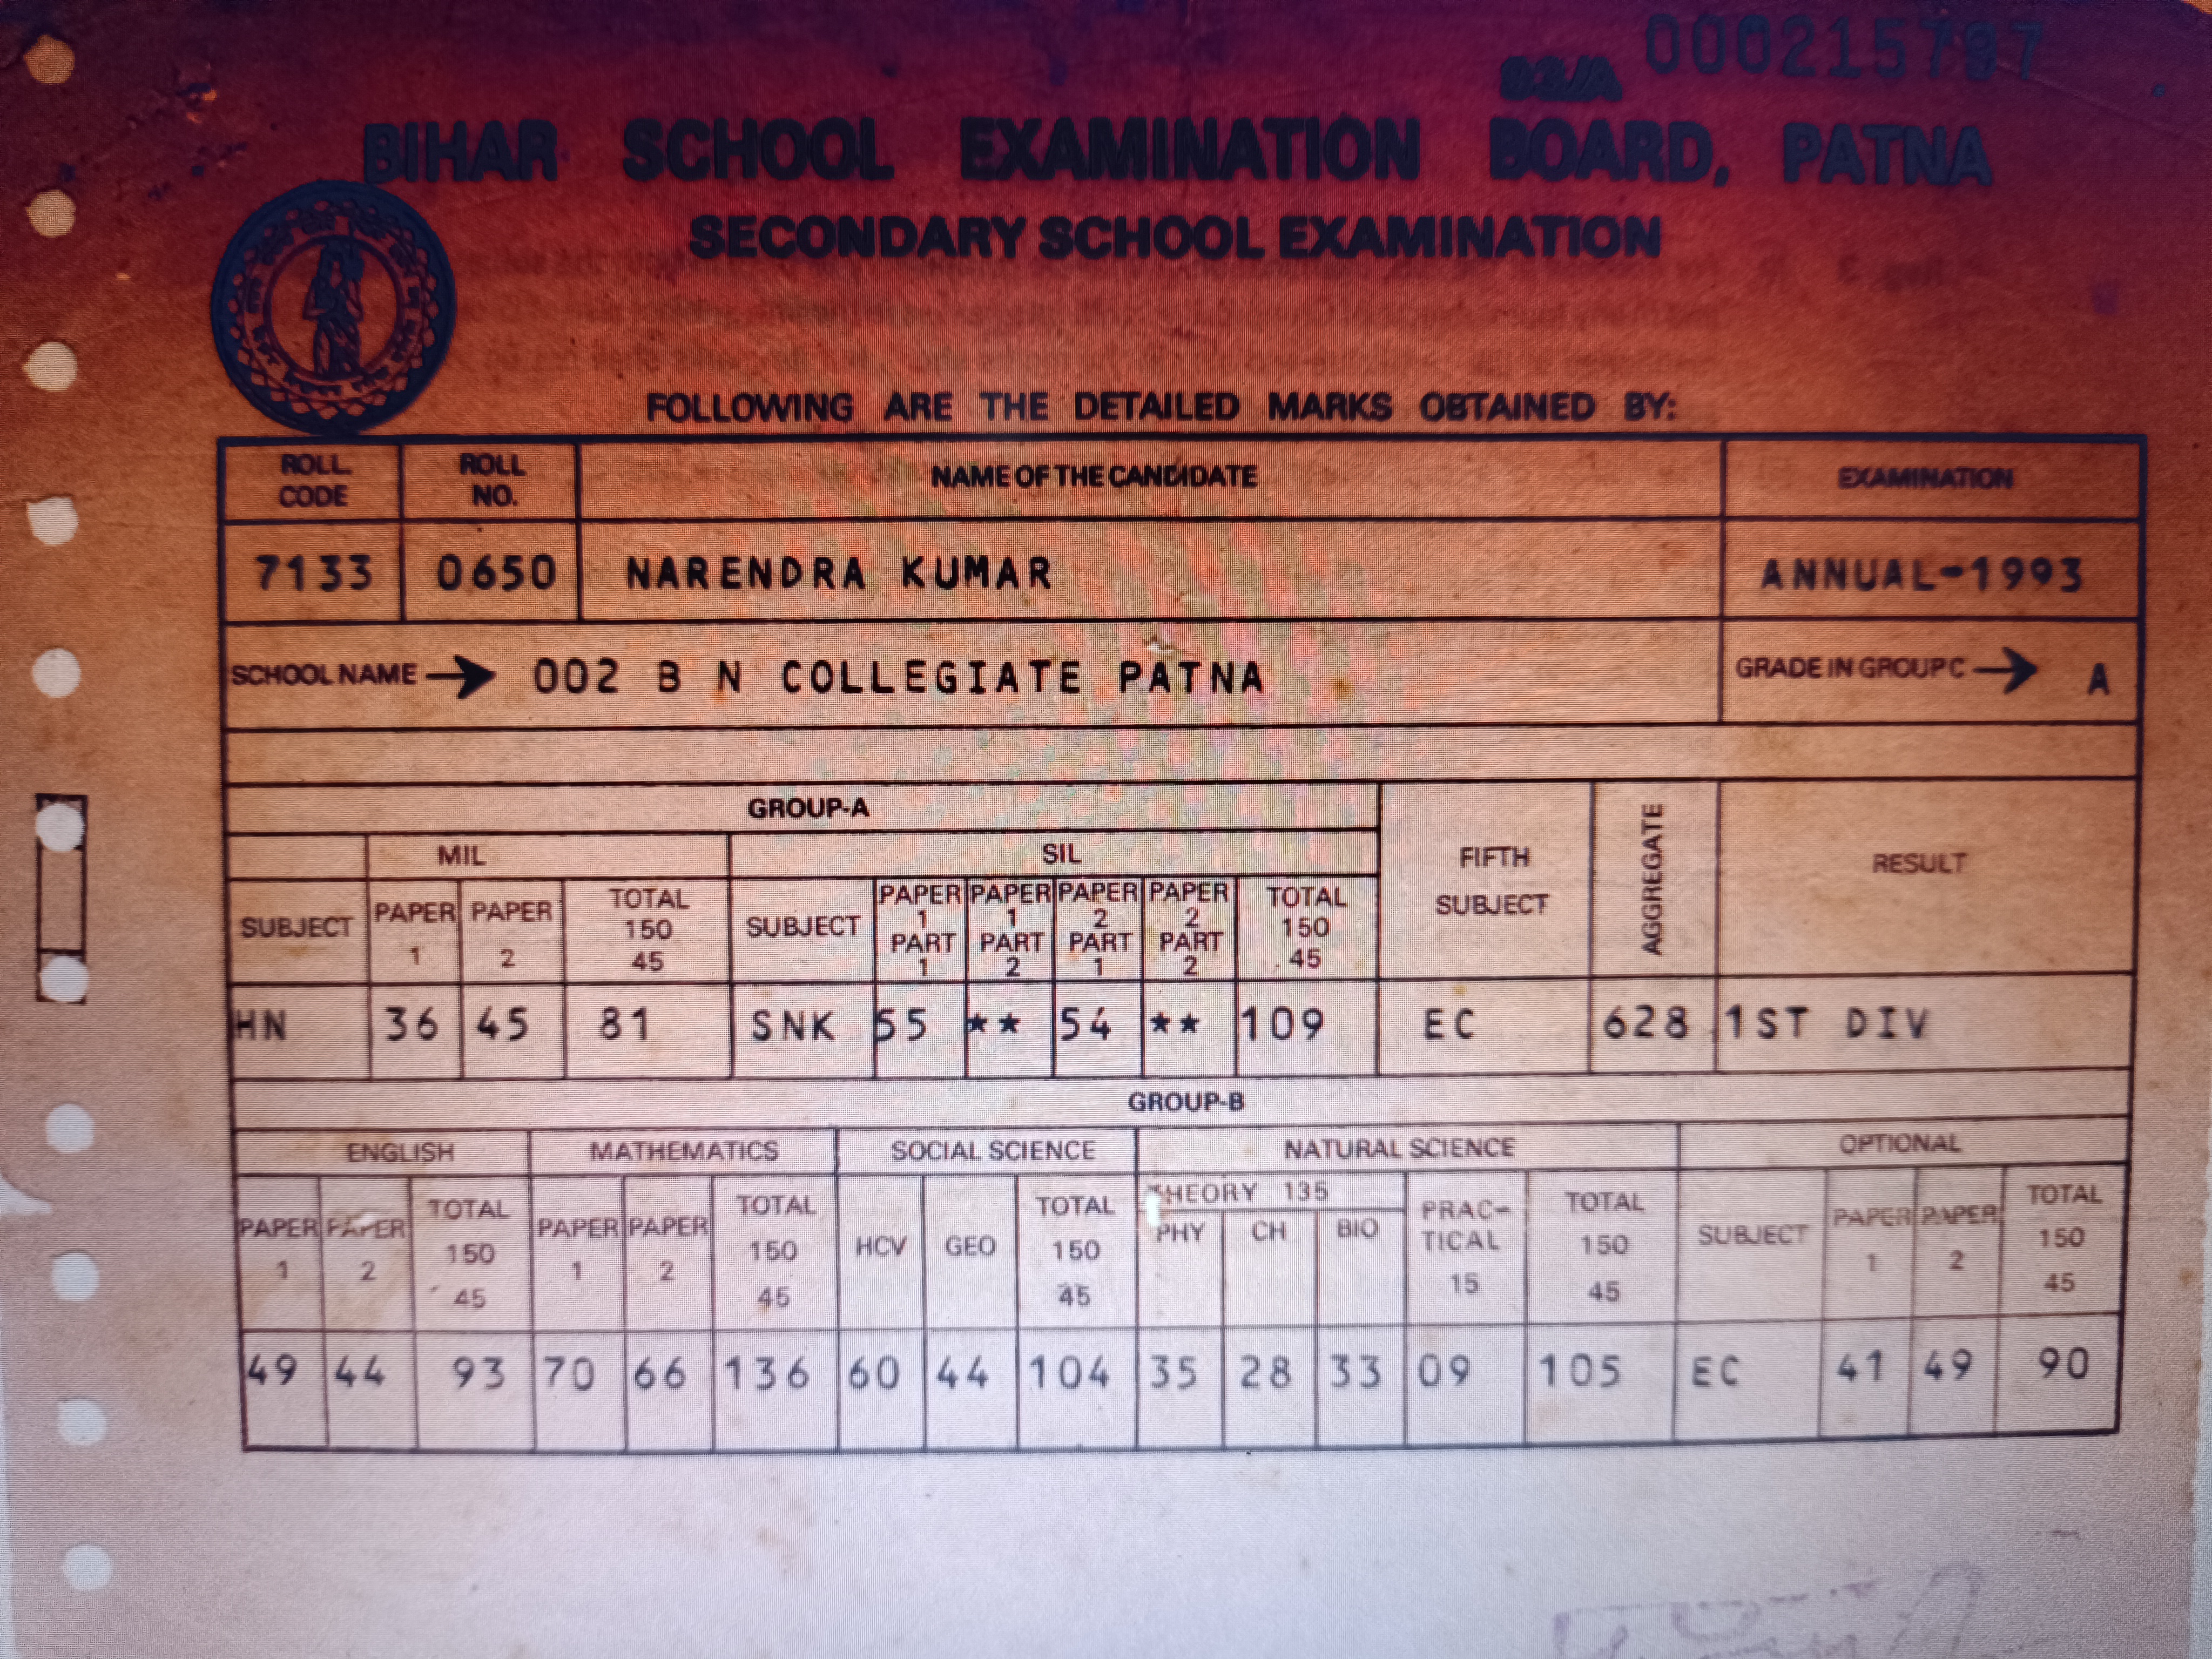 93/A 000215797
BIHAR SCHOOL EXAMINATION BOARD, PATNA
SECONDARY SCHOOL EXAMINATION
FOLLOWING ARE THE DETAILED MARKS OBTAINED BY:
ROLL CODE ROLL NO. NAME OF THE CANDIDATE EXAMINATION
7133 0650 NARENDRA KUMAR ANNUAL-1993
SCHOOL NAME → 002 B N COLLEGIATE PATNA GRADE IN GROUP C → A
GROUP-A FIFTH SUBJECT AGGREGATE RESULT
MIL SIL
SUBJECT PAPER 1 PAPER 2 TOTAL 150 45 SUBJECT PAPER 1 PART 1 PAPER 1 PART 2 PAPER 2 PART 1 PAPER 2 PART 2 TOTAL 150 45
HN 36 45 81 SNK 55 ** 54 ** 109 EC 628 1ST DIV
GROUP-B
ENGLISH MATHEMATICS SOCIAL SCIENCE NATURAL SCIENCE OPTIONAL
PAPER 1 PAPER 2 TOTAL 150 45 PAPER 1 PAPER 2 TOTAL 150 45 HCV GEO TOTAL 150 45 THEORY 135 PHY CH BIO PRAC-TICAL 15 TOTAL 150 45 SUBJECT PAPER 1 PAPER 2 TOTAL 150 45
49 44 93 70 66 136 60 44 104 35 28 33 09 105 EC 41 49 90